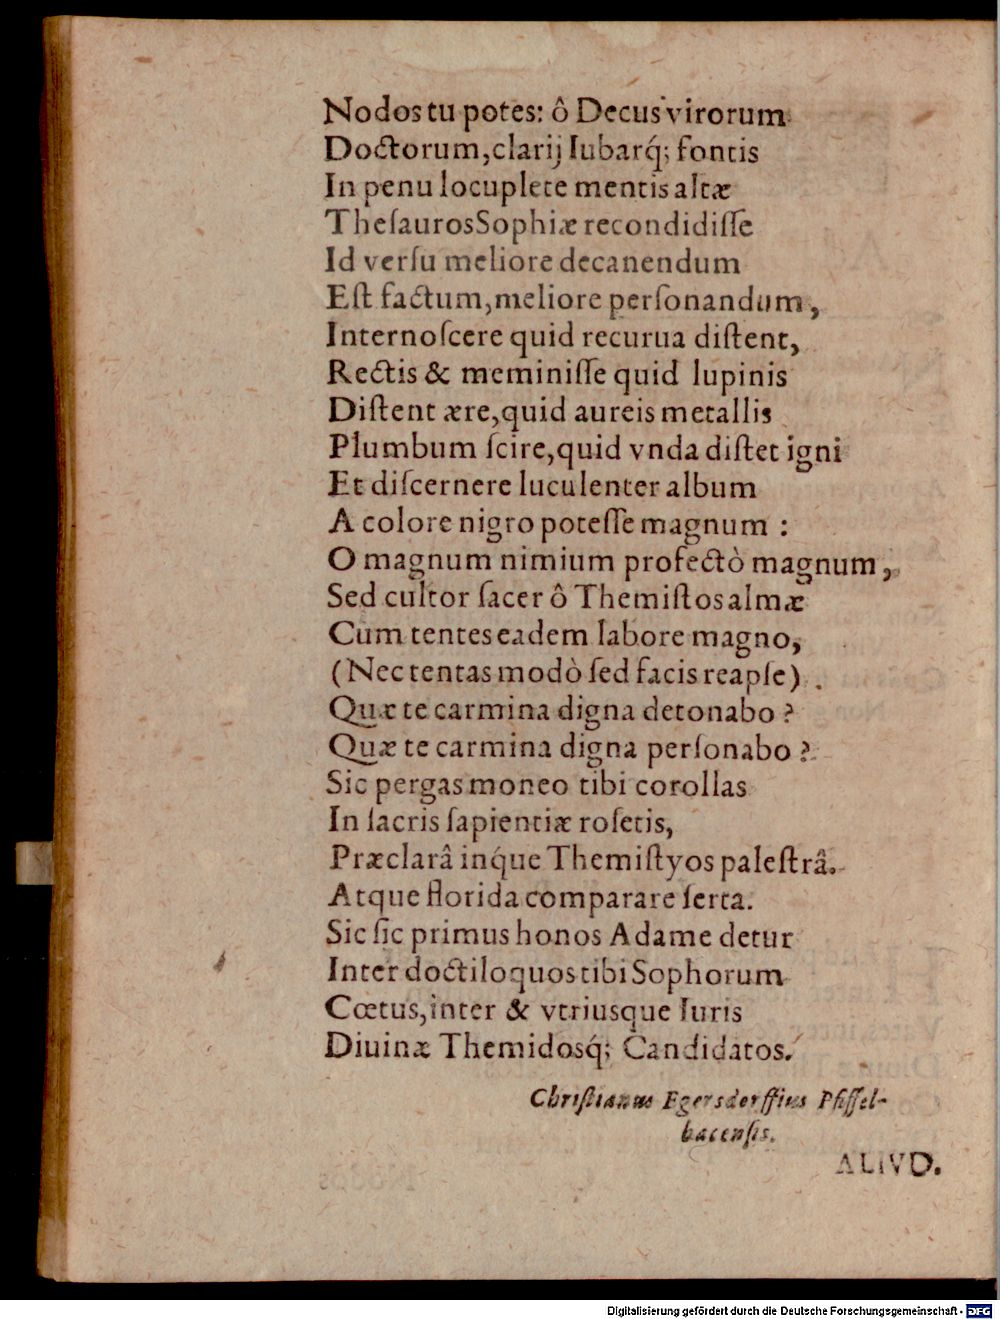 Nodos tu potes: ô Decus virorum
Doctorum, clarij Iubarq́; fontis
In penu locuplete mentis altæ
Theſauros Sophiæ recondidiſſe
Id verſu meliore decanendum
Eſt factum, meliore perſonandum,
Internoſcere quid recurua diſtent,
Rectis & meminiſſe quid lupinis
Diſtent ære, quid aureis metallis
Plumbum ſcire, quid vnda diſtet igni
Et diſcernere luculenter album
A colore nigro poteſſe magnum :
O magnum nimium profectò magnum,
Sed cultor ſacer ô Themiſtos almæ
Cum tentes eadem labore magno,
(Nec tentas modò ſed facis reapſe) .
Quæ te carmina digna detonabo ?
Quæ te carmina digna perſonabo ?
Sic pergas moneo tibi corollas
In ſacris ſapientiæ roſetis,
Præclarâ inq́ue Themiſtyos paleſtrâ.
Atque florida comparare ſerta.
Sic ſic primus honos Adame detur
Inter doctiloquos tibi Sophorum
Cœtus, inter & vtriusque Iuris
Diuinæ Themidosq́; Candidatos.
Chriſtianus Egersdorffius Pfiffel-
bacenſis.
ALIVD.
Digitalisierung gefördert durch die Deutsche Forschungsgemeinschaft - DFG